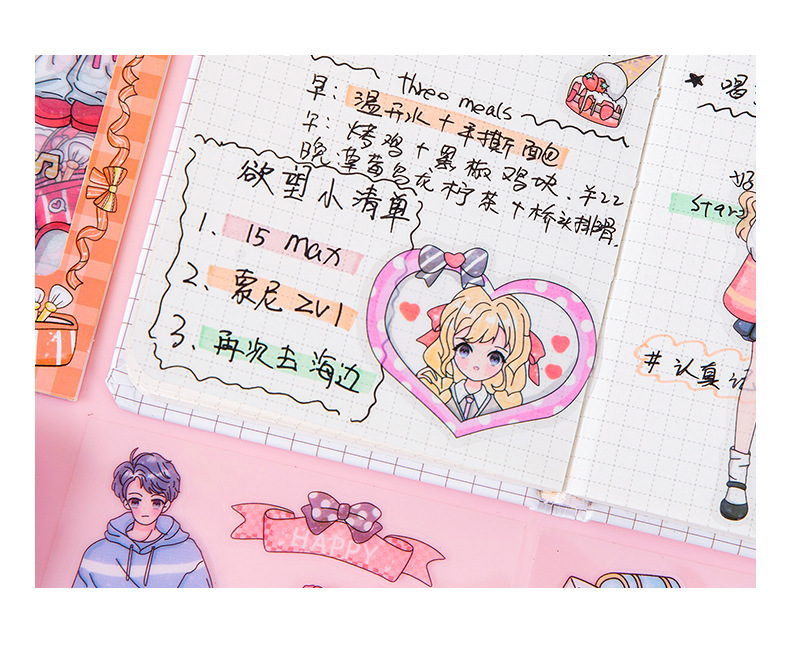 three meals
早：温开水＋手撕面包
午：烤鸡＋黑椒鸡块．￥22
晚：草莓乌龙柠茶＋桥头排骨．
欲望小清单
1、15 max
2、索尼 ZV1
3、再次去海边
★ 喝
好
Star
# 认真
HAPPY